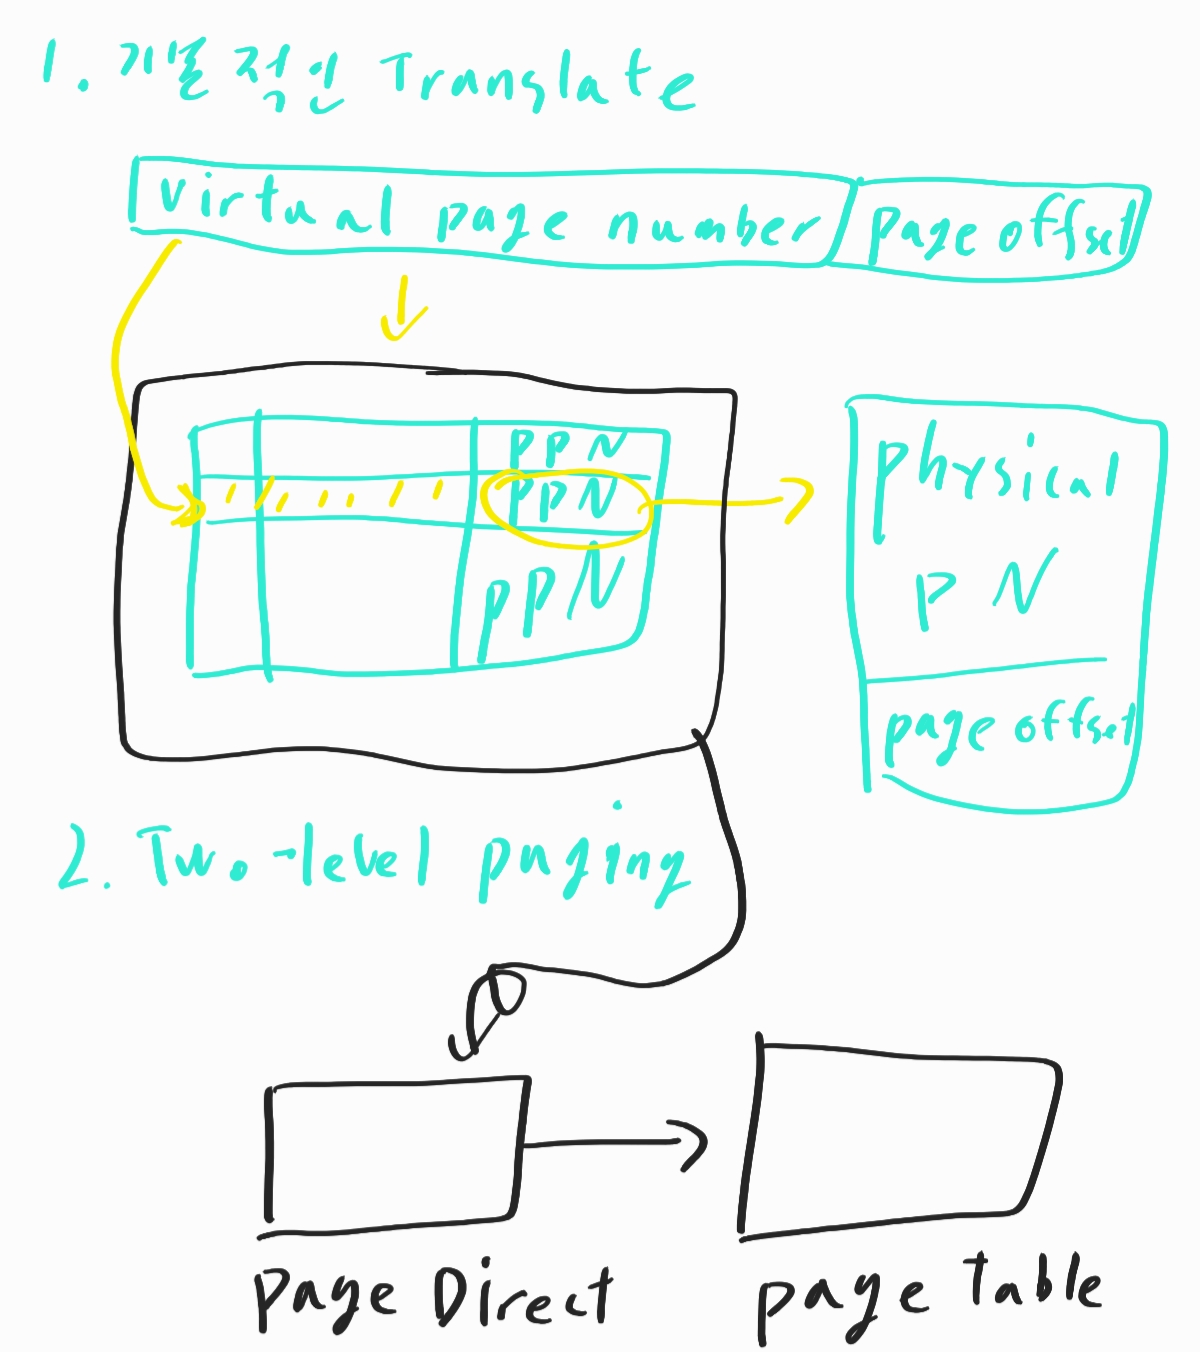 1. 기본적인 Translate
virtual page number page offset
PPN
PPN
PPN
physical
PN
page offset
2. Two-level paging
page Direct
page Table